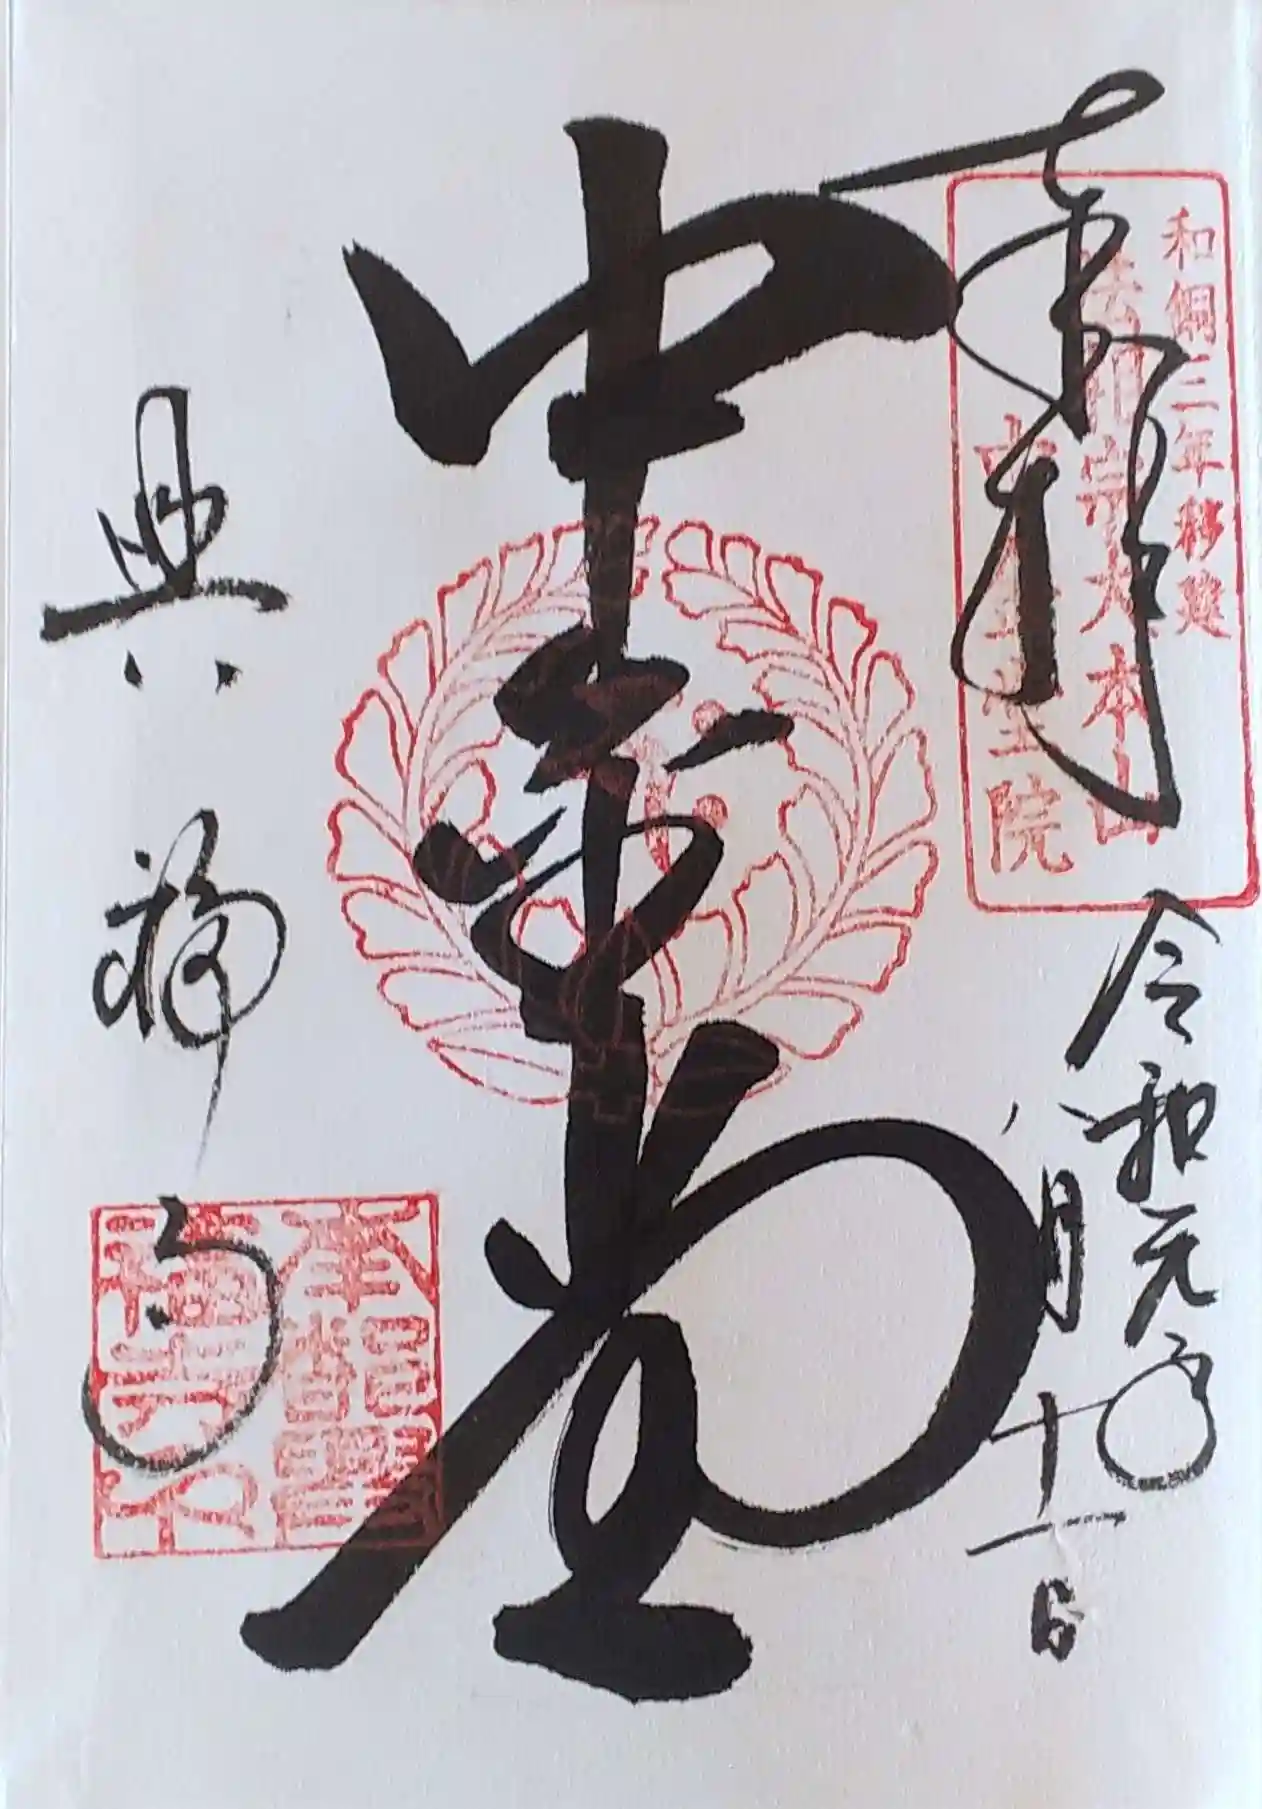 奉拝
和銅三年移建
法相宗大本山
堂院
令和元年
八月十一日
中金堂
興福寺